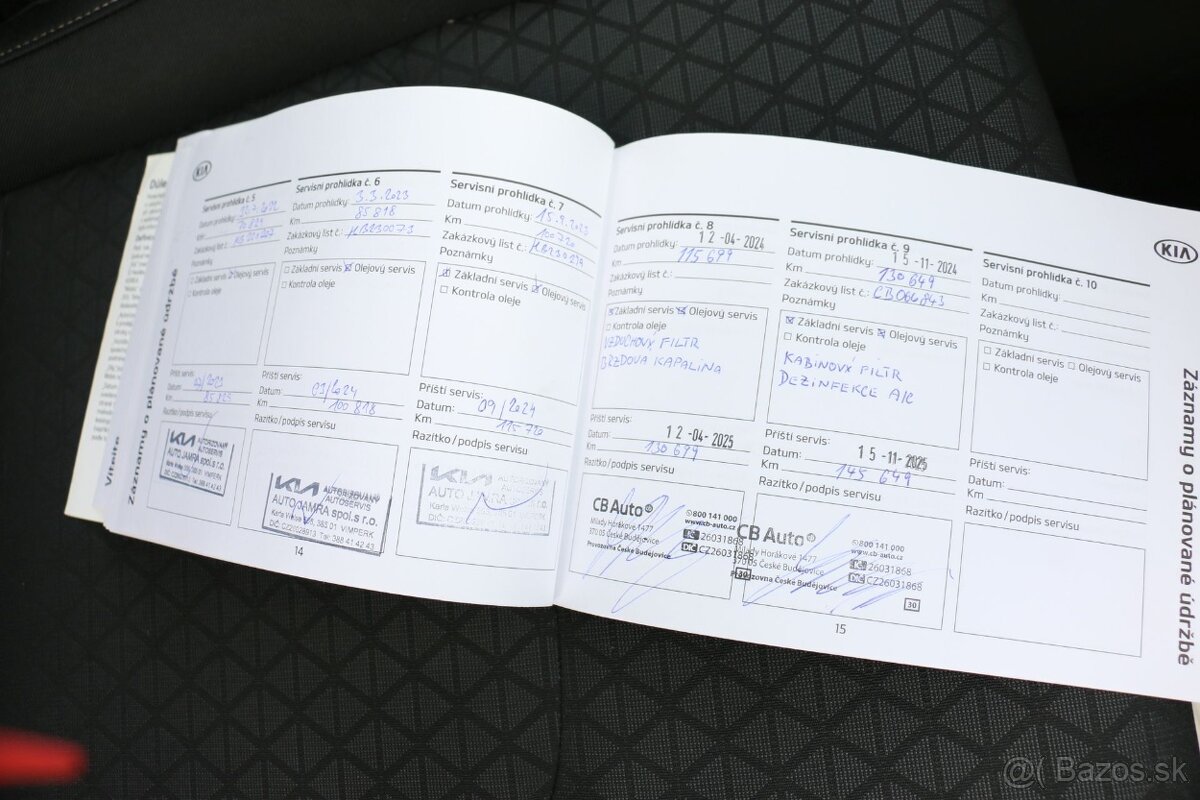 KIA
Důle
Vítejte
Záznamy o plánované údržbě
Servisní prohlídka č. 5
Datum prohlídky:
Km
Zakázkový list č.:
Poznámky
Základní servis Olejový servis
Kontrola oleje
Příští servis:
Datum:
Km 85 823
Razítko/podpis servisu
KIA AUTORIZOVANÝ AUTOSERVIS
AUTO JAMRA spol.s r.o.
Servisní prohlídka č. 6
Datum prohlídky: 3.3.2023
Km 85 818
Zakázkový list č.: HB230073
Poznámky
Základní servis Olejový servis
Kontrola oleje
Příští servis:
Datum: 03/2024
Km 100 818
Razítko/podpis servisu
KIA AUTORIZOVANÝ AUTOSERVIS
AUTO JAMRA spol.s r.o.
385 01 VIMPERK
DIČ: CZ26028913 Tel: 388 41 42 43
14
Servisní prohlídka č. 7
Datum prohlídky: 15.9.2023
Km 100 720
Zakázkový list č.:
Poznámky
Základní servis Olejový servis
Kontrola oleje
Příští servis:
Datum: 09/2024
Km 115 720
Razítko/podpis servisu
KIA AUTORIZOVANÝ AUTOSERVIS
AUTO JAMRA
Servisní prohlídka č. 8
Datum prohlídky: 12-04-2024
Km 115 699
Zakázkový list č.:
Poznámky
Základní servis Olejový servis
Kontrola oleje
VZDUCHOVÝ FILTR
BRZDOVA KAPALINA
Příští servis:
Datum: 12-04-2025
Km 130 699
Razítko/podpis servisu
CB Auto 800 141 000
Milady Horákové 1477 www.cb-auto.cz
370 05 České Budějovice IČ 26031868
Provozovna České Budějovice DIČ CZ26031868
30
Servisní prohlídka č. 9
Datum prohlídky: 15-11-2024
Km 130 649
Zakázkový list č.: CB064843
Poznámky
Základní servis Olejový servis
Kontrola oleje
KABINOVÝ FILTR
DEZINFEKCE A/C
Příští servis:
Datum: 15-11-2025
Km 145 649
Razítko/podpis servisu
CB Auto 800 141 000
Milady Horákové 1477 www.cb-auto.cz
370 05 České Budějovice IČ 26031868
Provozovna České Budějovice DIČ CZ26031868
30
15
KIA
Servisní prohlídka č. 10
Datum prohlídky:
Km
Zakázkový list č.:
Poznámky
Základní servis Olejový servis
Kontrola oleje
Příští servis:
Datum:
Km
Razítko/podpis servisu
Záznamy o plánované údržbě
@( Bazos.sk